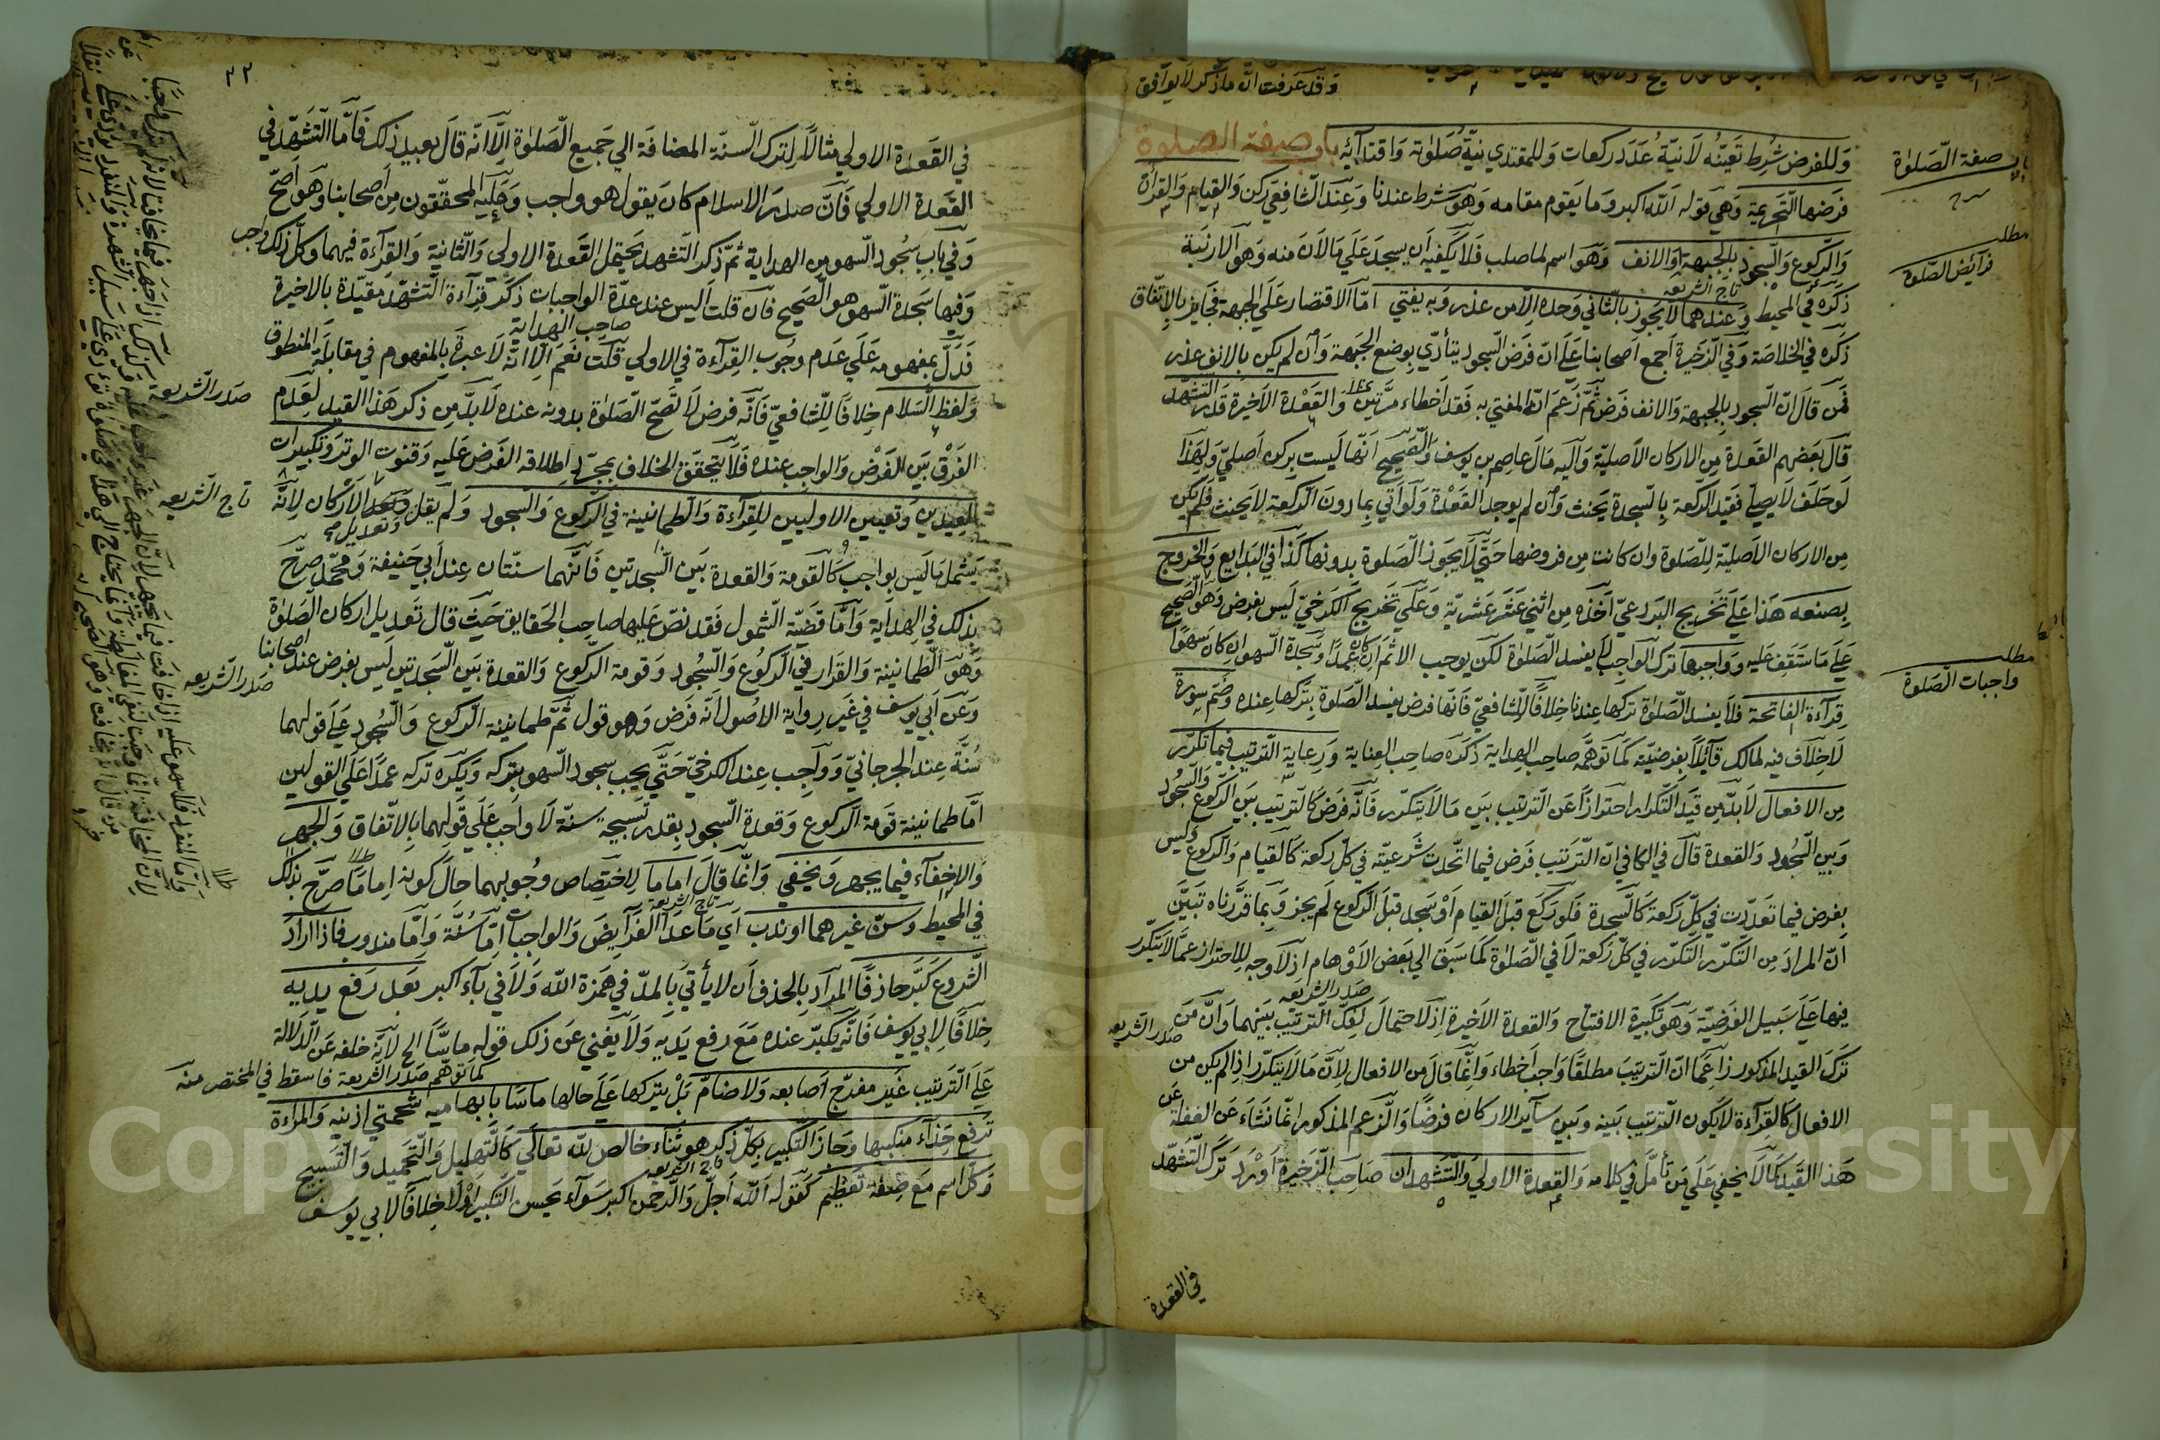 وقد عرفت ان ما ذكر لا يوافق
وللفرض شرط تعينه لا نية عدد ركعات وللمقتدي نية صلوته واقتدائه باب صفة الصلوة
باب صفة الصلوة
فرضها التحريمة وهي قوله الله اكبر وما يقوم مقامه وهو شرط عندنا وعند الشافعي ركن والقيام والقراة
والركوع والسجود بالجبهة والانف وهو اسم لما صلب فلا يكفيه ان يسجد على مالان منه وهو الارنبة
مطلب
فرائض الصلوة
تاج الشريعه
ذكره في المحيط وعندهما لا يجوز بالثاني وحده الا من عذر وبه يفتي اما الاقتصار على الجبهة فجايز بالاتفاق
ذكره في الخلاصة وفي الذخيرة اجمع اصحابنا على ان فرض السجود يتأدي بوضع الجبهة وان لم يكن بالانف عذر
فمن قال ان السجود بالجبهة والانف فرض ثم زعم انه المفتي به فقد اخطاء مرتين والقعدة الاخيرة قدر التشهد
قال بعضهم القعدة من الاركان الاصلية واليه مال عاصم بن يوسف والصحيح انها ليست بركن اصلي ولهذا
لو حلف لا يصلي فقيد الركعة بالسجدة يحنث وان لم يوجد القعدة ولو اتي بما دون الركعة لا يحنث فلم يكن
من الاركان الاصلية للصلوة وان كانت من فروضها حتي لا يجوز الصلوة بدونها كذا في البدايع والخروج
بصنعه هذا علي تخريج البردعي اخذه من اثني عشرية وعلي تخريج الكرخي ليس بفرض وهو الصحيح
علي ما ستقف عليه وواجبها ترك الواجب لا يفسد الصلوة لكن يوجب الاثم ان كان عمدا وسجدة السهو ان كان سهوا
مطلب
واجبات الصلوة
قراءة الفاتحة فلا يفسد الصلوة تركها عندنا خلافا للشافعي فانها فرض يفسد الصلوة بتركها عنده وضم سورة
لا خلاف فيه لمالك قايلا بفرضيته كما توهمه صاحب الهداية ذكره صاحب العناية ورعاية الترتيب فيما تكرر
من الافعال لا بد من قيد التكرار احترازا عن الترتيب بين ما لا يتكرر فانه فرض كالترتيب بين الركوع والسجود
وبين السجود والقعدة قال في الكافي ان الترتيب فرض فيما اتحدت شرعيته في كل ركعة كالقيام والركوع وليس
بفرض فيما تعددت في كل ركعة كالسجدة فلو ركع قبل القيام او سجد قبل الركوع لم يجز وبما قررناه تبين
ان المراد من التكرر التكرر في كل ركعة لا في الصلوة كما سبق الي بعض الاوهام اذ لا وجه للاحتراز عما لا يتكرر
صدر الشريعه
فيها علي سبيل الفرضية وهو تكبيرة الافتتاح والقعدة الاخيرة اذ لا احتمال لفك الترتيب بينهما وان من
صدر الشريعه
ترك القيد المذكور زاعما ان الترتيب مطلقا واجب اخطاء وانما قال من الافعال لان ما لا يتكرر اذا لم يكن من
الافعال كالقراءة لا يكون الترتيب بينه وبين ساير الاركان فرضا والزعم المذكور انما نشاء عن الغفلة عن
هذا القيد كما لا يخفي علي من تأمل في كلامه والقعدة الاولي والتشهدان صاحب الذخيرة اورد ترك التشهد
في القعدة
٢٢
في القعدة الاولي مثالا لترك السنة المضافة الي جميع الصلوة الا انه قال بعيد ذلك فاما التشهد في
القعدة الاولي فان صدر الاسلام كان يقول هو واجب وعليه المحققون من اصحابنا وهو اصح
وفي باب سجود السهو من الهداية ثم ذكر التشهد يحتمل القعدة الاولي والثانية والقراءة فيهما وكل ذلك واجب
وفيها سجدة السهو هو الصحيح فان قلت اليس عند عدة الواجبات ذكر قراءة التشهد مقيدة بالاخيرة
صاحب الهداية
فدل بمفهومه علي عدم وجوب القراءة في الاولي قلت نعم الا انه لا عبرة بالمفهوم في مقابلة المنطوق
ولفظ السلام خلافا للشافعي فانه فرض لا تصح الصلوة بدونه عنده لا بد من ذكر هذا القيد لعدم
صدر الشريعة
الفرق بين الفرض والواجب عنده فلا يتحقق الخلاف بمجرد اطلاقه الفرض عليه وقنوت الوتر وتكبيرات
العيدين وتعيين الاوليين للقراءة والطمانينة في الركوع والسجود ولم يقل وتعديل الاركان لانه
تاج الشريعه
يشمل ما ليس بواجب كالقومة والقعدة بين السجدتين فانهما سنتان عند ابي حنيفة ومحمد صرح
بذلك في الهداية واما قضية الشمول فقد نص عليها صاحب الحقايق حيث قال تعديل اركان الصلوة
وهو الطمانينة والقرار في الركوع والسجود وقومة الركوع والقعدة بين السجدتين ليس بفرض عند اصحابنا
صدر الشريعه
وعن ابي يوسف في غير رواية الاصول انه فرض وهو قول ثم طمانينة الركوع والسجود علي قولهما
سنة عند الجرجاني وواجب عند الكرخي حتي يجب سجود السهو بتركه ويكره تركه عمدا علي القولين
اما طمانينة قومة الركوع وقعدة السجود بقدر تسبيحة سنة لا واجب علي قولهما بالاتفاق والجهر
والاخفاء فيما يجهر ويخفي وانما قال اماما لاختصاص وجوبهما حال كونه اماما صرح بذلك
تاج الشريعة
في المحيط وسن غيرهما او ندب اي ما عدا الفرايض والواجبات اما سنة واما مندوب فاذا اراد
الشروع كبر حاذفا المراد بالحذف ان لا يأتي بالمد في همزة الله ولا في باء اكبر بعد رفع يديه
خلافا لابي يوسف فانه يكبر عنده مع رفع يديه ولا يغني عن ذلك قوله ماسا الخ لانه خلفه عن الدلالة
كما توهم صدر الشريعة فاسقط في المختصر منه
علي الترتيب غير مفرج اصابعه ولا ضام بل يتركها علي حالها ماسا بابهاميه شحمتي اذنيه والمراءة
ترفع حذاء منكبيها وجاز التكبير بكل ذكر هو ثناء خالص لله تعالي كالتهليل والتحميد والتسبيح
تاج الشريعه
وكل اسم مع صفة تعظيم كقوله الله اجل والرحمن اكبر سواء يحسن التكبير اولا خلافا لابي يوسف
Copyright © King Saud University